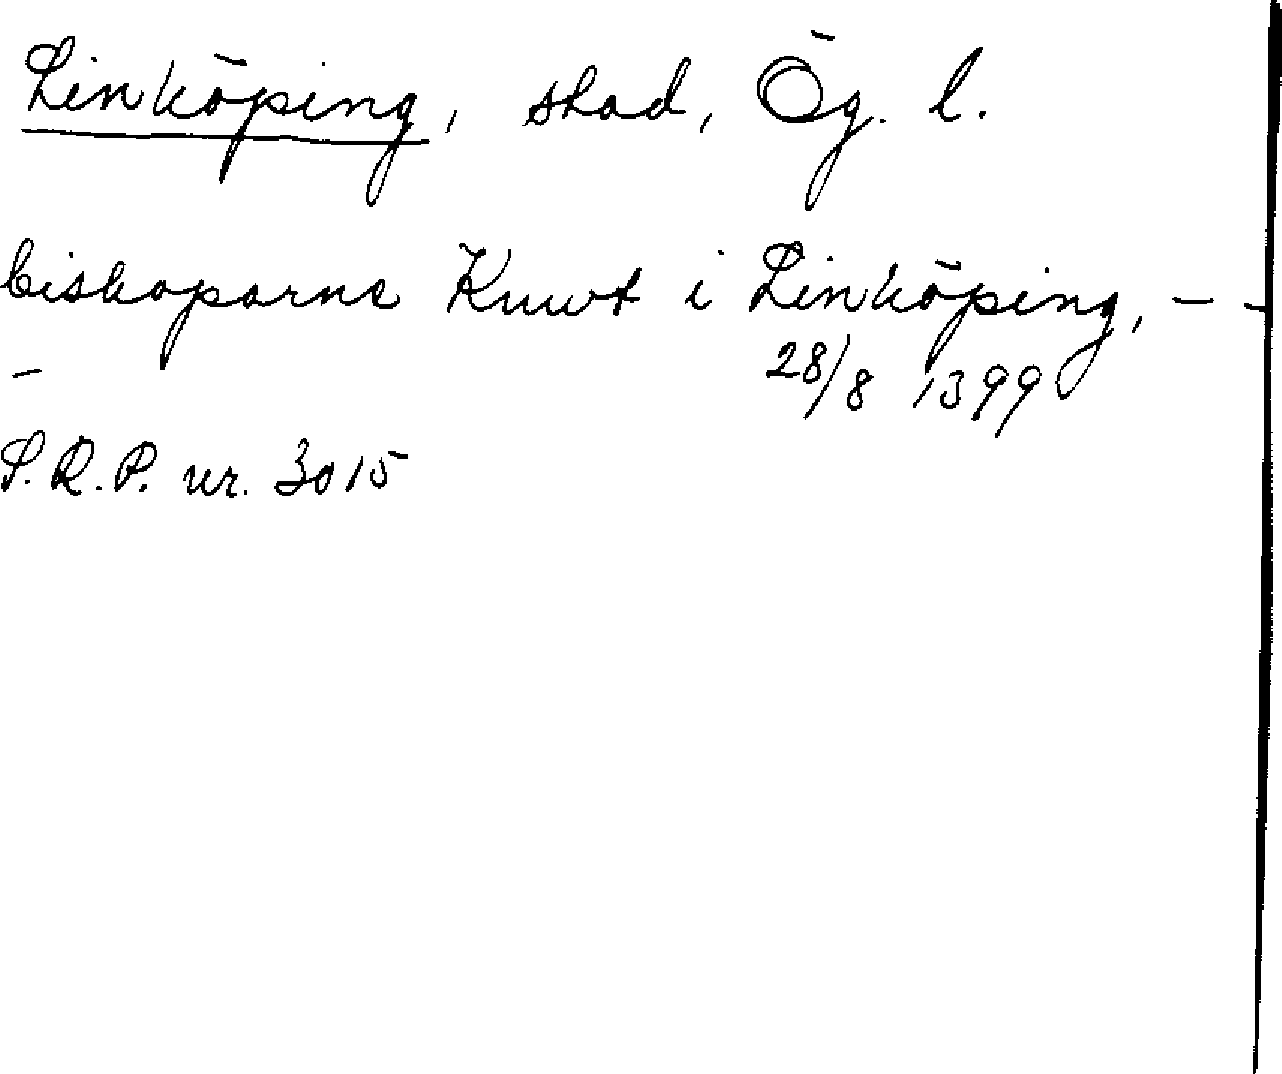 Linköping, stad, Ög. l.
biskoparne Knut i Linköping, - -
- 28/8 1399
S.R.P. nr. 3015